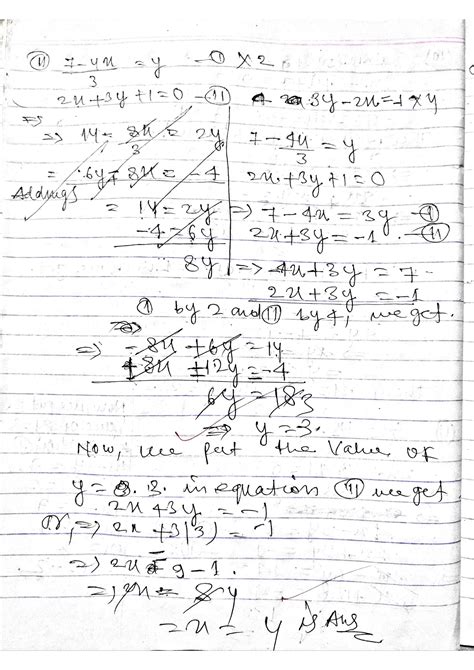 (ii) 7-4x/3 = y —(i) × 2
2x+3y+1=0 —(ii)
3y-2x=-1 × 4
⇒ 14 - 8x/3 = 2y
= 6y + 8x = -4
Adding
= 14 = 2y
-4 = 6y
8y
7-4x/3 = y
2x+3y+1=0
⇒ 7-4x = 3y —(i)
2x+3y = -1 —(ii)
⇒ 4x+3y = 7
2x+3y = -1
(i) by 2 and (ii) by 4, we get.
⇒ 8x + 6y = 14
8x ± 12y = -4
6y = 18 3
⇒ y = 3.
Now, we put the Value of
y = 3. in equation (ii) we get
2x+3y = -1
or, ⇒ 2x + 3(3) = -1
⇒ 2x = 9-1.
⇒ 2x = 8 4
= x = 4 is Ans